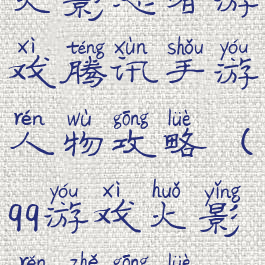 火影忍者游
xì téng xùn shǒu yóu
戏腾讯手游
rén wù gōng lüè
人物攻略（
yóu xì huǒ yǐng
99游戏火影
rěn zhě gōng lüè